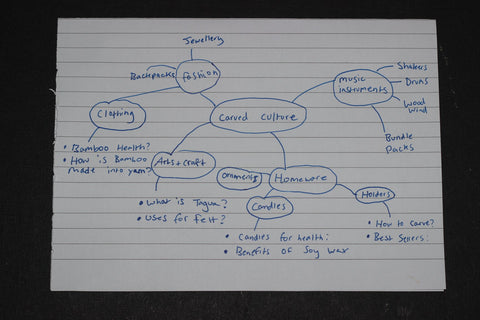 Jewellery
Backpacks
fashion
Clothing
• Bamboo Health?
• How is Bamboo
made into yarn?
Carved culture
music
instruments
Shakers
Drums
Wood
Wind
Bundle
Packs
Arts + Craft
• What is Tagua?
• Uses for felt?
Homeware
Ornaments
Candles
• Candles for health:
• Benefits of Soy Wax
Holders
• How to carve?
• Best Sellers: